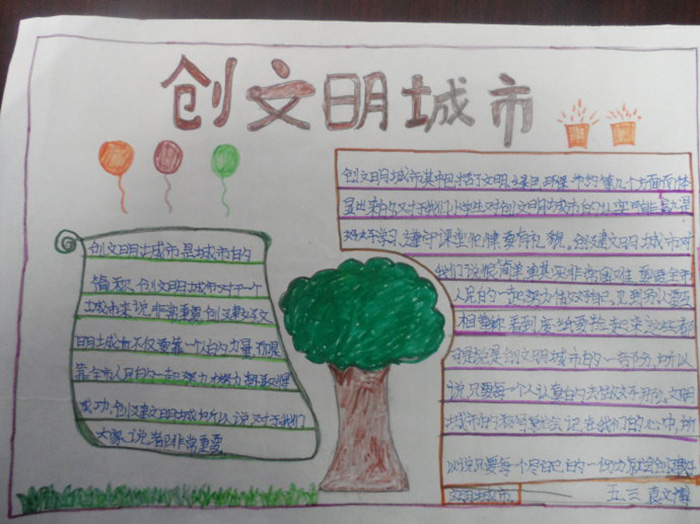 创文明城市
创文明城市是城市的
简称,创文明城市对于一个
城市来说,非常重要,创建文
明城市不仅要靠一个人的力量,而是
靠全市人民的一起努力,努力才能取得
成功,创建文明城市所以说对于我们
大家说都非常重要
创文明城市其中包括了文明 环保 等几个方面而体
现出来的,对于我们小学生对创文明城市的认实可能是
好好学习,遵守课堂纪律,要有礼貌。创建文明城市对
我们说很简单,其实非常困难,需要全市
人民的一起努力,做好自己,见到别人要互
相 看到废纸要捡起来,这些都
可是说是创文明城市的一部分,所以
说只要每一个人认真的去做文明
城市的称号 会记在我们的心中,所
以说只要每个尽自己的一份力 会创建好
文明城市
五、三 袁文博